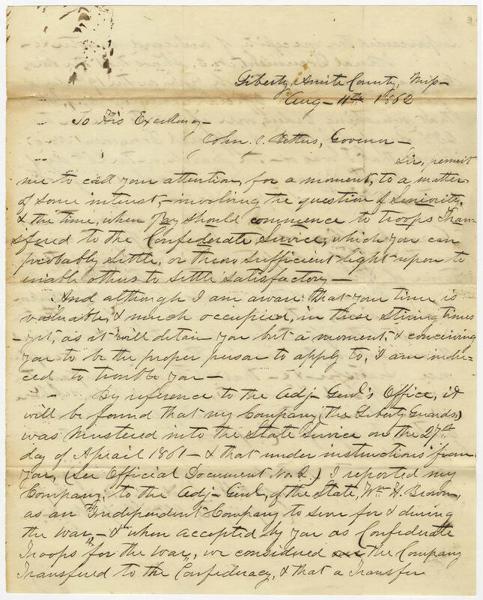 Liberty, Amite County, Miss-
Aug- 11th 1862
To His Excellency-
John. J. Pettus, Govenor-
Sir, permit
me to call your attention, for a moment, to a matter
of some interest,- involving the question of Seniority,
& the time, when Pay should commence to troops Tran-
sfered to the Confederate Service, which you can
probably settle, or throw sufficient light upon to
enable others to settle satisfactory-
And although I am aware that your time is
valuable, & much occupied, in these stiring times
yet, as it will detain you but a moment, & conceiving
you to be the proper person to apply to, I am indu-
ced to trouble you-
- By reference to the Adj- Genl's Office, it
will be found that my Company (The Liberty Guards)
was mustered into the State Service on the 27th
day of Aprail 1861- & that under instructions from
you, (See Official Document No. 1.) I reported my
Company, to the Adj- Genl, of the State, Wm H. Brown,
as an "Independent" Company to serve for & during
the War,- & when accepted by you as Confederate
Troops "for the War", we considered the Company
Transfered to the Confederacy, & that a Transfer